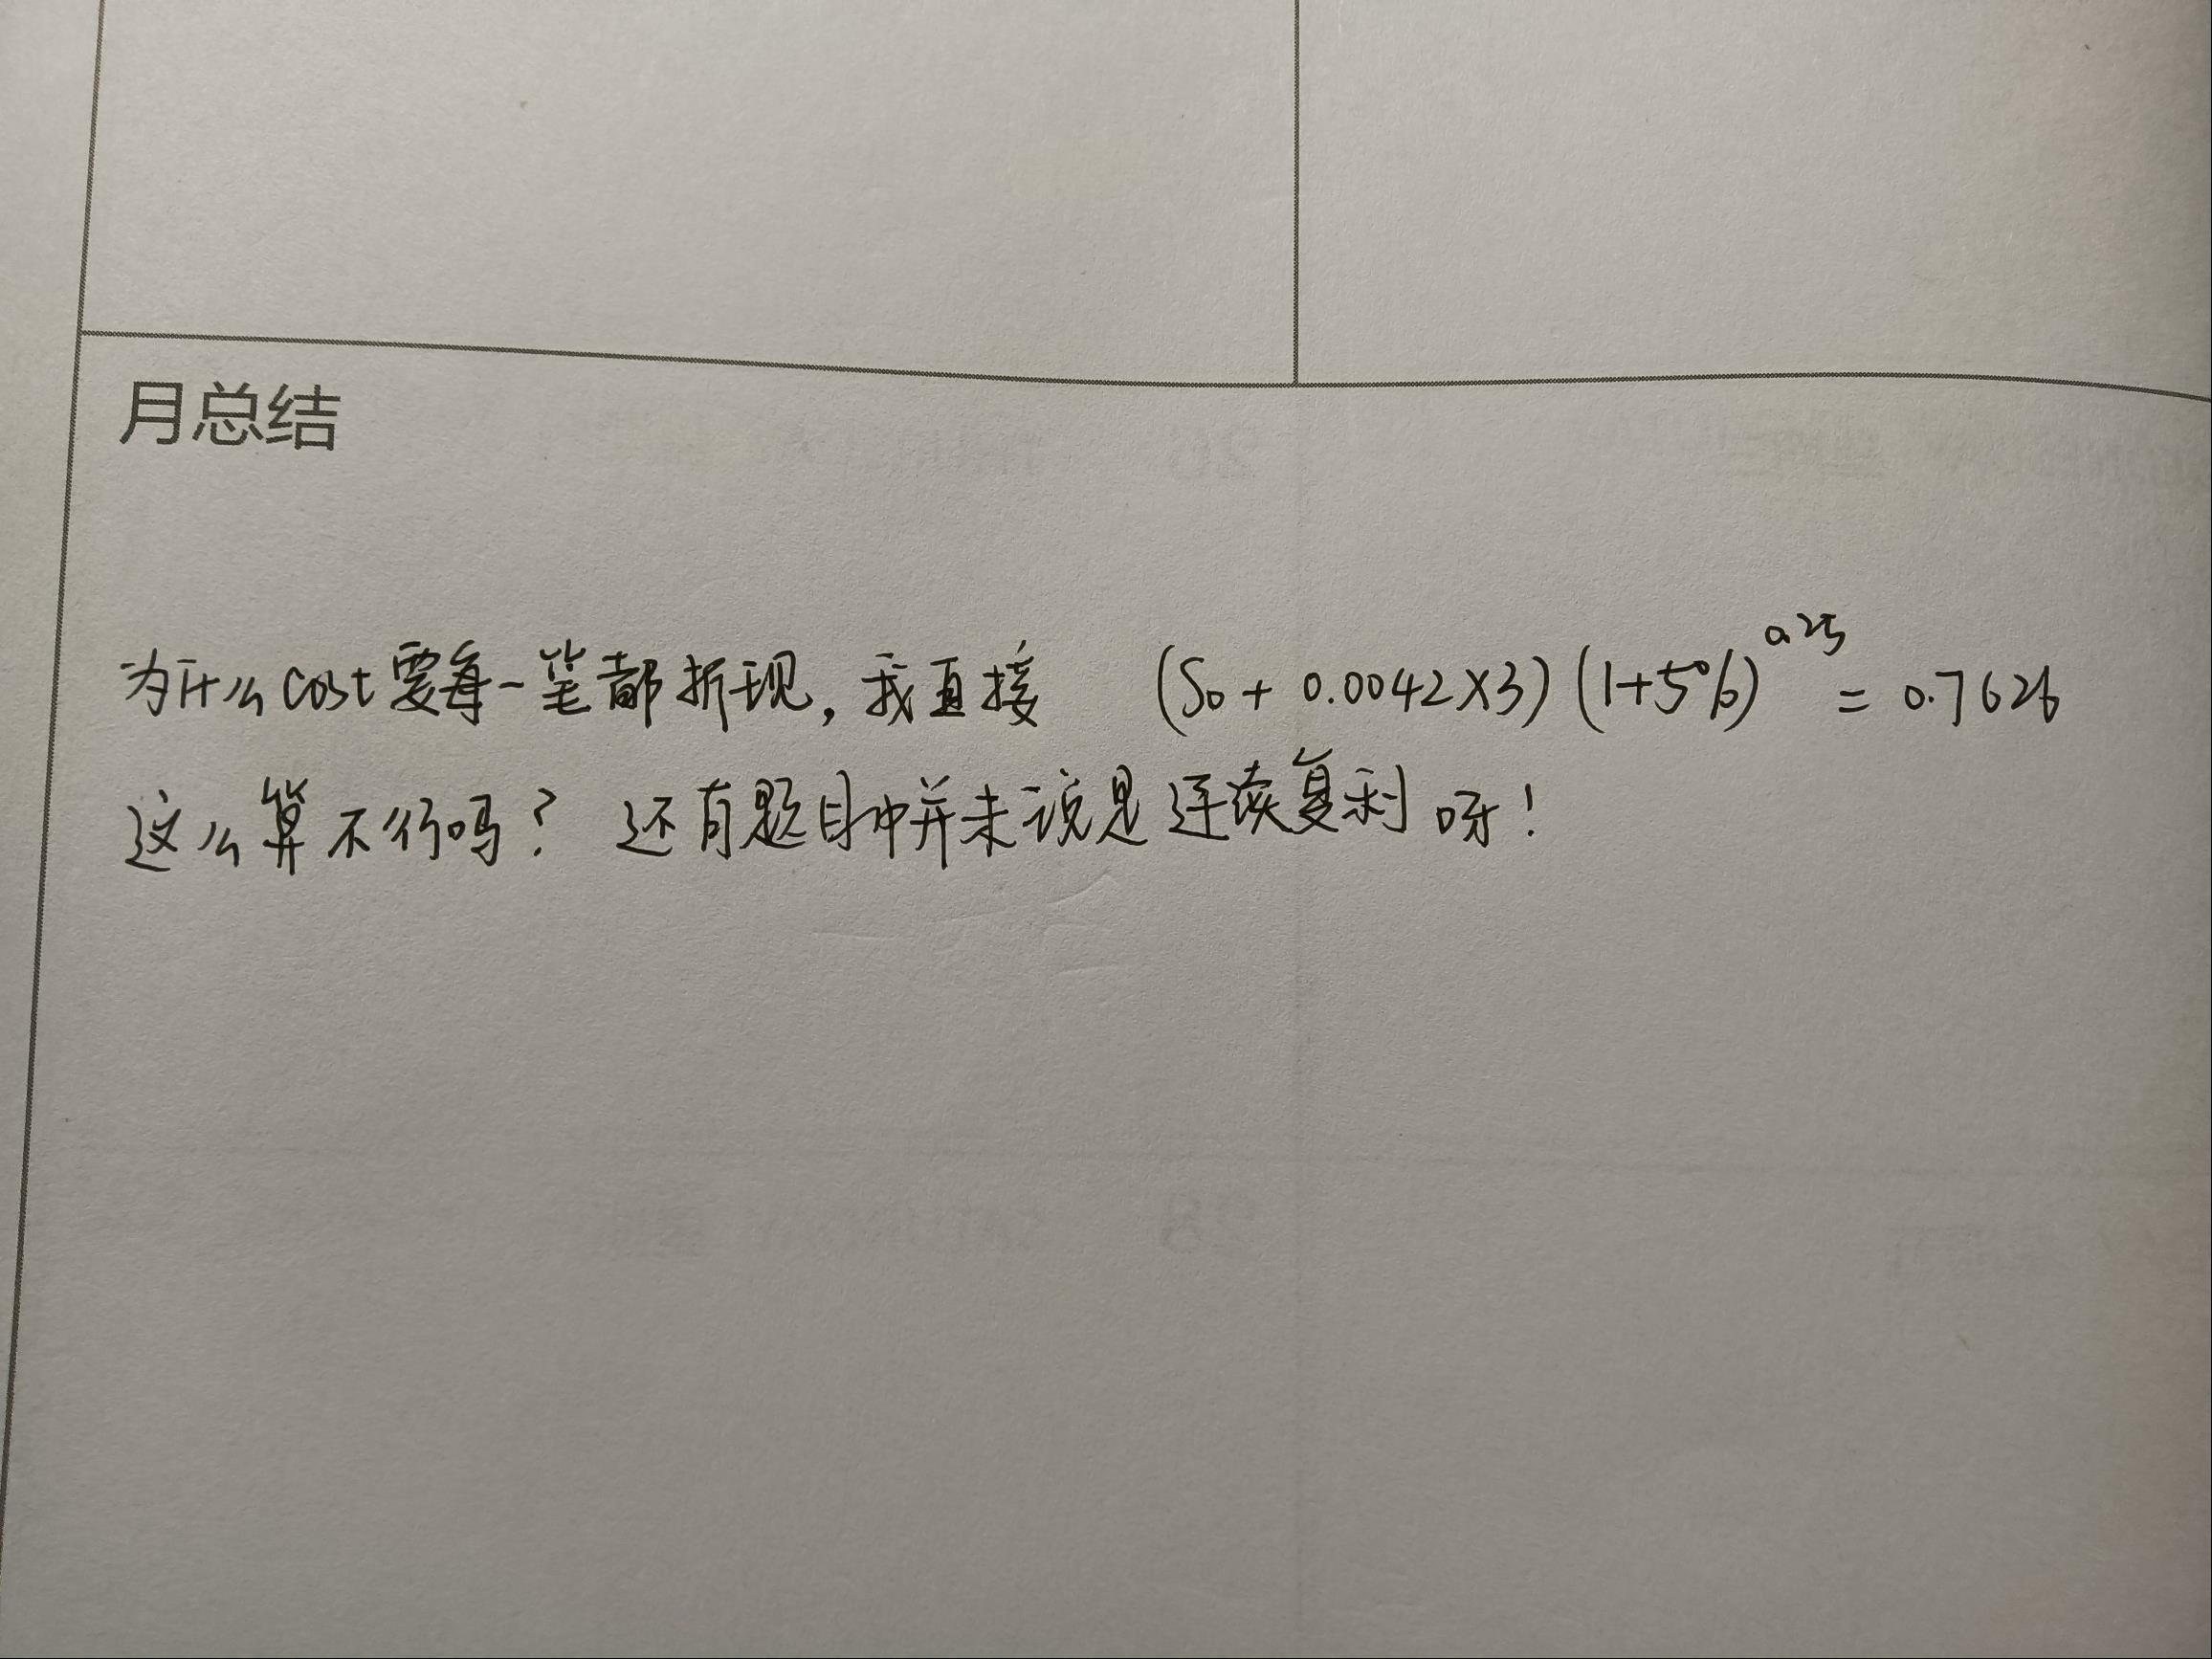 月总结
为什么cost要每一笔都折现，我直接 (S₀ + 0.0042×3)(1+5%)^0.25 = 0.7626
这么算不行吗？ 还有题目中并未说是连续复利呀！